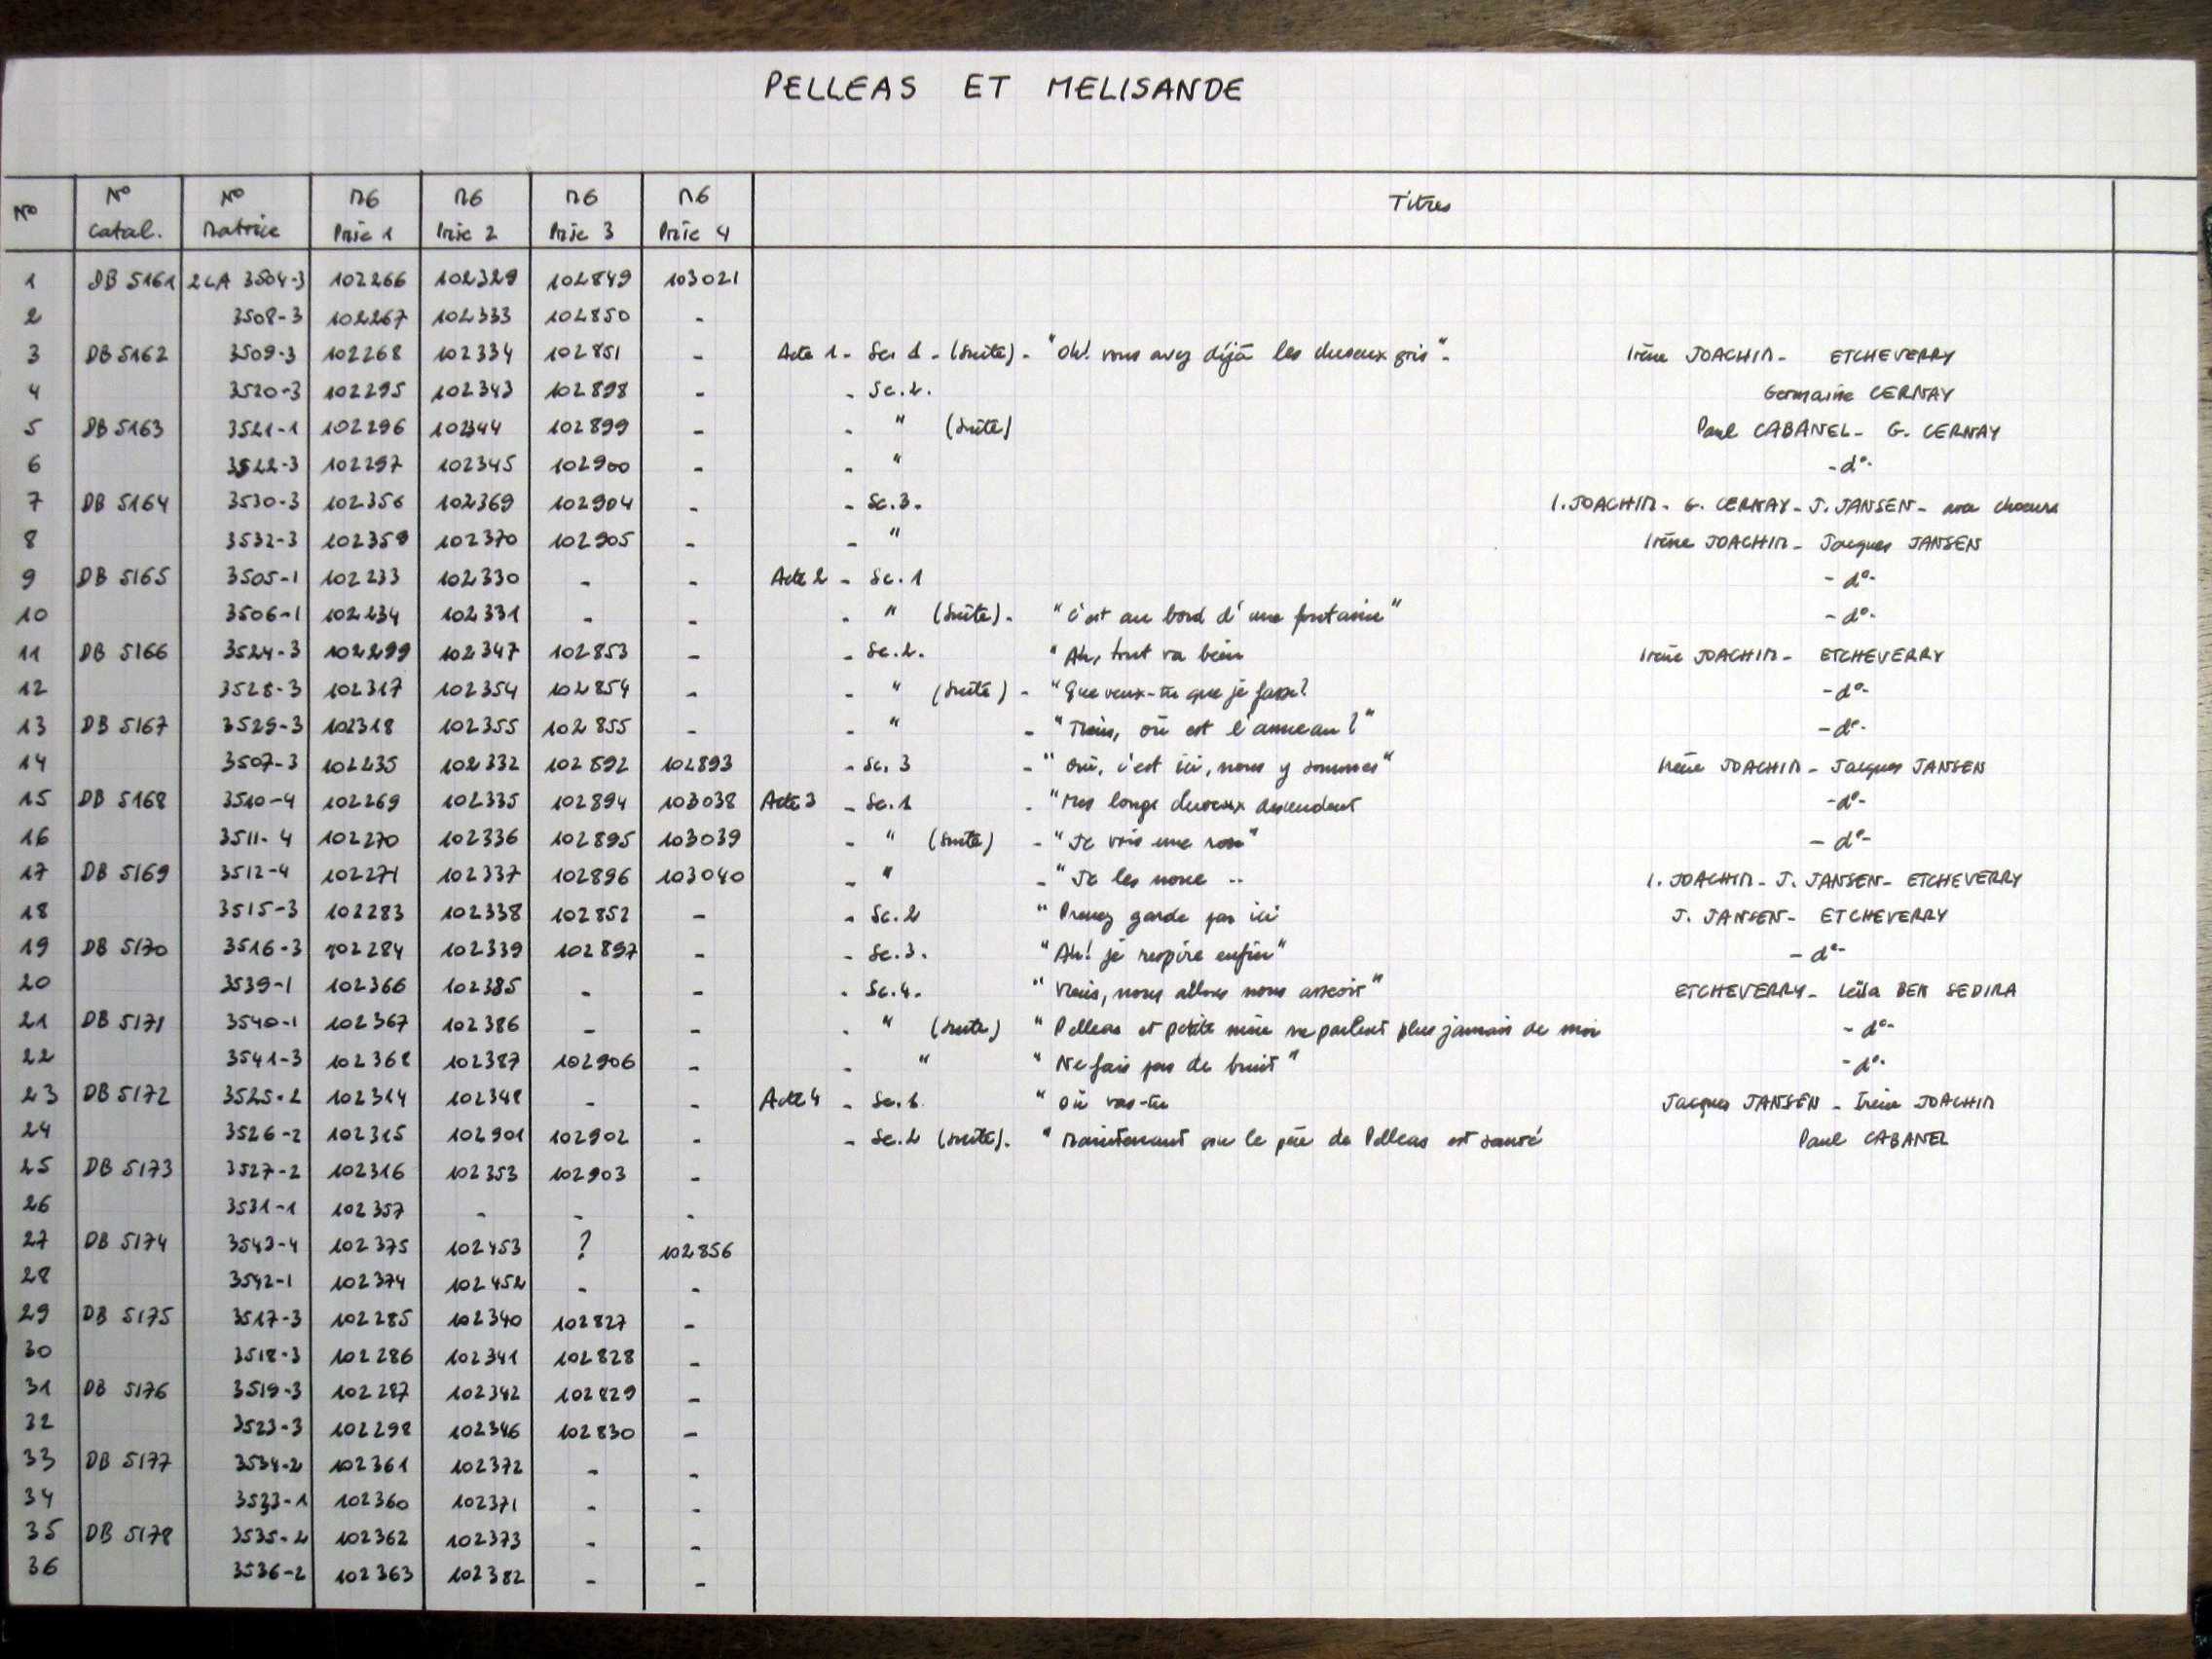 PELLEAS ET MELISANDE
No No catal. No Matrice M6 Prise 1 M6 Prise 2 M6 Prise 3 M6 Prise 4 Titres
1 DB 5161 2LA 3504-3 102266 102329 102849 103021
2 3508-3 102267 102333 102850 -
3 DB 5162 3509-3 102268 102334 102851 - Acte 1 - Sc. 1 - (suite) - "Oh! vous avez déjà les cheveux gris" - Irène JOACHIM - ETCHEVERRY
4 3520-3 102295 102343 102898 - - Sc. 2. Germaine CERNAY
5 DB 5163 3521-1 102296 102344 102899 - - " (suite) Paul CABANEL - G. CERNAY
6 3522-3 102297 102345 102900 - - " - d° -
7 DB 5164 3530-3 102356 102369 102904 - - Sc. 3. I. JOACHIM - G. CERNAY - J. JANSEN - avec choeurs
8 3532-3 102359 102370 102905 - - " Irène JOACHIM - Jacques JANSEN
9 DB 5165 3505-1 102233 102330 - - Acte 2 - Sc. 1 - d° -
10 3506-1 102234 102331 - - - " (suite) - "c'est au bord d'une fontaine" - d° -
11 DB 5166 3524-3 102299 102347 102853 - - Sc. 2. "Ah, tout va bien Irène JOACHIM - ETCHEVERRY
12 3528-3 102317 102354 102854 - - " (suite) - "Que veux-tu que je fasse? - d° -
13 DB 5167 3529-3 102318 102355 102855 - - " - "Tiens, où est l'anneau?" - d° -
14 3507-3 102235 102332 102892 102893 - Sc. 3 - "Oui, c'est ici, nous y sommes" Irène JOACHIM - Jacques JANSEN
15 DB 5168 3510-4 102269 102335 102894 103038 Acte 3 - Sc. 1 - "Mes longs cheveux descendent - d° -
16 3511-4 102270 102336 102895 103039 - " (suite) - "Je vois une rose" - d° -
17 DB 5169 3512-4 102271 102337 102896 103040 - " - "Je les noue .. I. JOACHIM - J. JANSEN - ETCHEVERRY
18 3515-3 102283 102338 102852 - - Sc. 2 "Prenez garde par ici J. JANSEN - ETCHEVERRY
19 DB 5170 3516-3 102284 102339 102897 - - Sc. 3. "Ah! je respire enfin" - d° -
20 3539-1 102366 102385 - - - Sc. 4. "Viens, nous allons nous asseoir" ETCHEVERRY - Leïla BEN SEDIRA
21 DB 5171 3540-1 102367 102386 - - - " (suite) "Pelleas et petite mère ne parlent plus jamais de moi - d° -
22 3541-3 102368 102387 102906 - - " "Ne fais pas de bruit" - d° -
23 DB 5172 3525-2 102314 102348 - - Acte 4 - Sc. 1 "Où vas-tu Jacques JANSEN - Irène JOACHIM
24 3526-2 102315 102901 102902 - - Sc. 2 (suite). "Maintenant que le père de Pelleas est sauvé Paul CABANEL
25 DB 5173 3527-2 102316 102353 102903 -
26 3531-1 102357 - - -
27 DB 5174 3543-4 102375 102453 ? 102856
28 3542-1 102374 102452 - -
29 DB 5175 3517-3 102285 102340 102827 -
30 3518-3 102286 102341 102828 -
31 DB 5176 3519-3 102287 102342 102829 -
32 3523-3 102298 102346 102830 -
33 DB 5177 3534-2 102361 102372 - -
34 3533-1 102360 102371 - -
35 DB 5178 3535-2 102362 102373 - -
36 3536-2 102363 102382 - -